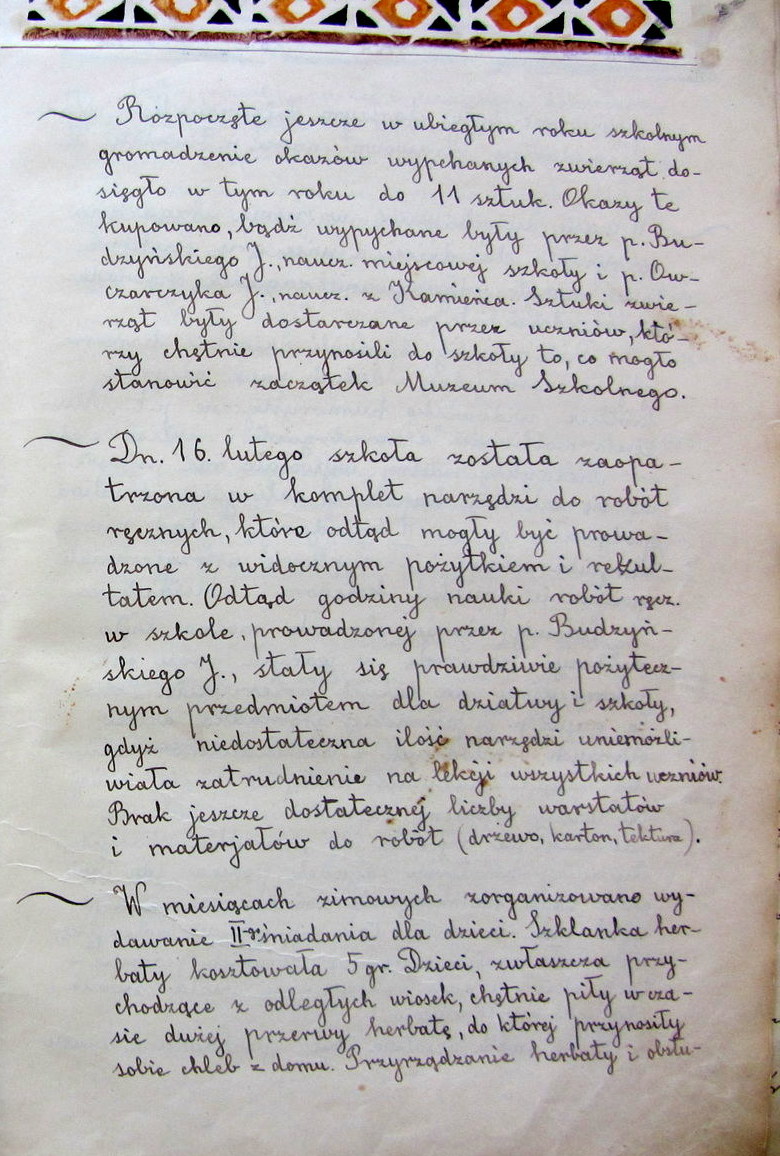 ~ Rozpoczęte jeszcze w ubiegłym roku szkolnym
gromadzenie okazów wypchanych zwierząt do-
sięgło w tym roku do 11 sztuk. Okazy te
kupowano, bądź wypychane były przez p. Bu-
dzyńskiego J., naucz. miejscowej szkoły i p. Ow-
czarczyka J., naucz. z Kamieńca. Sztuki zwie-
rząt były dostarczane przez uczniów, któ-
rzy chętnie przynosili do szkoły to, co mogło
stanowić zaczątek Muzeum Szkolnego.
~ Dn. 16. lutego szkoła została zaopa-
trzona w komplet narzędzi do robót
ręcznych, które odtąd mogły być prowa-
dzone z widocznym pożytkiem i rezul-
tatem. Odtąd godziny nauki robót ręcz.
w szkole, prowadzonej przez p. Budzyń-
skiego J., stały się prawdziwie pożytecz-
nym przedmiotem dla dziatwy i szkoły,
gdyż niedostateczna ilość narzędzi uniemożli-
wiała zatrudnienie na lekcji wszystkich uczniów.
Brak jeszcze dostatecznej liczby warstatów
i materjałów do robót (drzewo, karton, tektura).
~ W miesiącach zimowych zorganizowano wy-
dawanie II-gr śniadania dla dzieci. Szklanka her-
baty kosztowała 5 gr. Dzieci, zwłaszcza przy-
chodzące z odległych wiosek, chętnie piły w cza-
sie dużej przerwy herbatę, do której przynosiły
sobie chleb z domu. Przyrządzanie herbaty i obsłu-